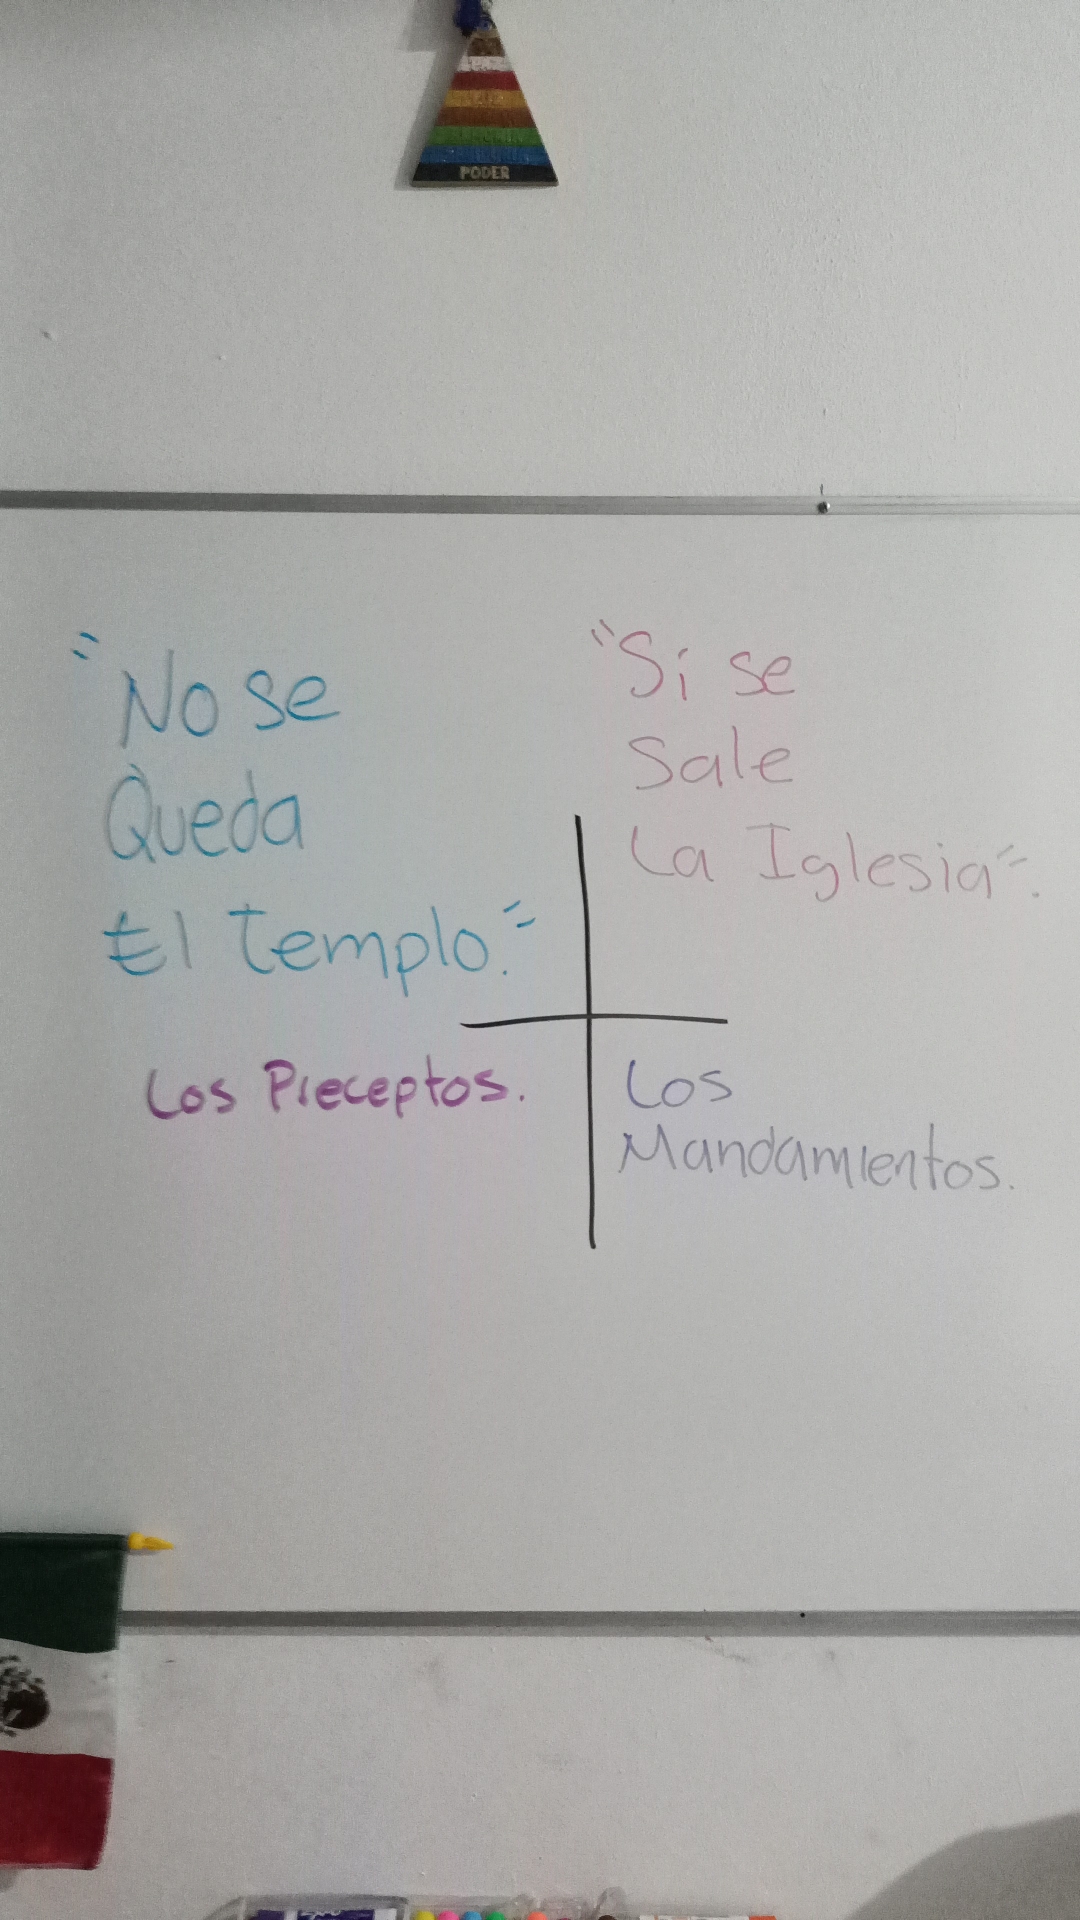 PODER
"No se
Queda
El Templo."
"Sí se
Sale
La Iglesia".
Los Preceptos.
Los
Mandamientos.